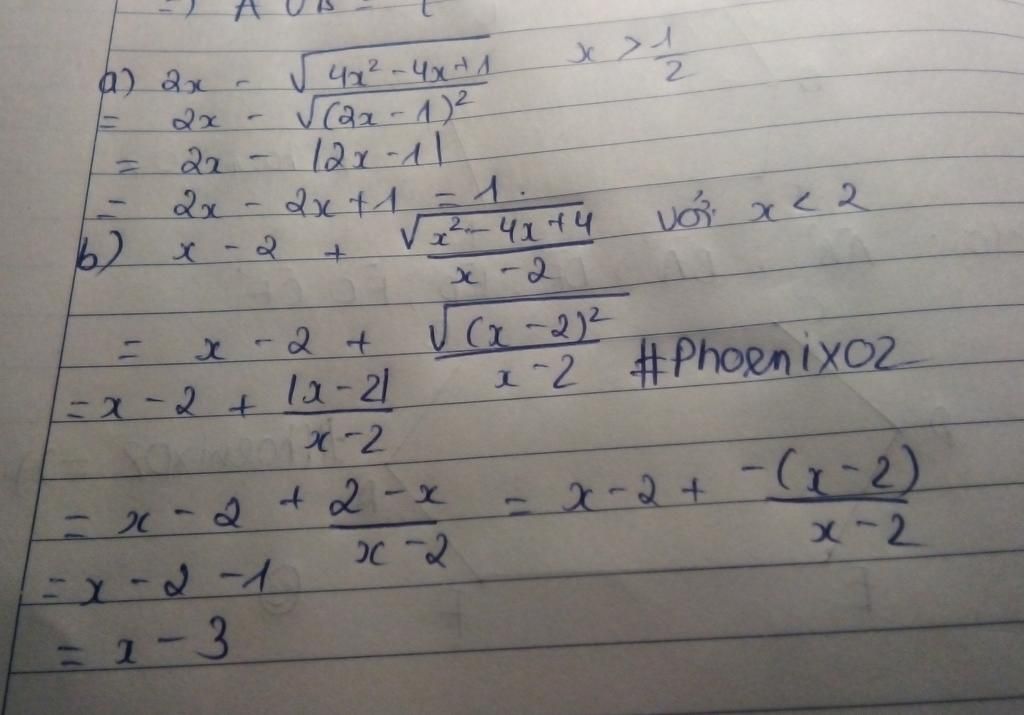 =) A ∪ B = {
a) 2x - √(4x² - 4x + 1) x > 1/2
= 2x - √((2x - 1)²)
= 2x - |2x - 1|
= 2x - 2x + 1 = 1.
b) x - 2 + √(x² - 4x + 4)/(x - 2) với x < 2
= x - 2 + √((x - 2)²)/(x - 2) #Phoenix02
= x - 2 + |x - 2|/(x - 2)
= x - 2 + (2 - x)/(x - 2) = x - 2 + (-(x - 2))/(x - 2)
= x - 2 - 1
= x - 3